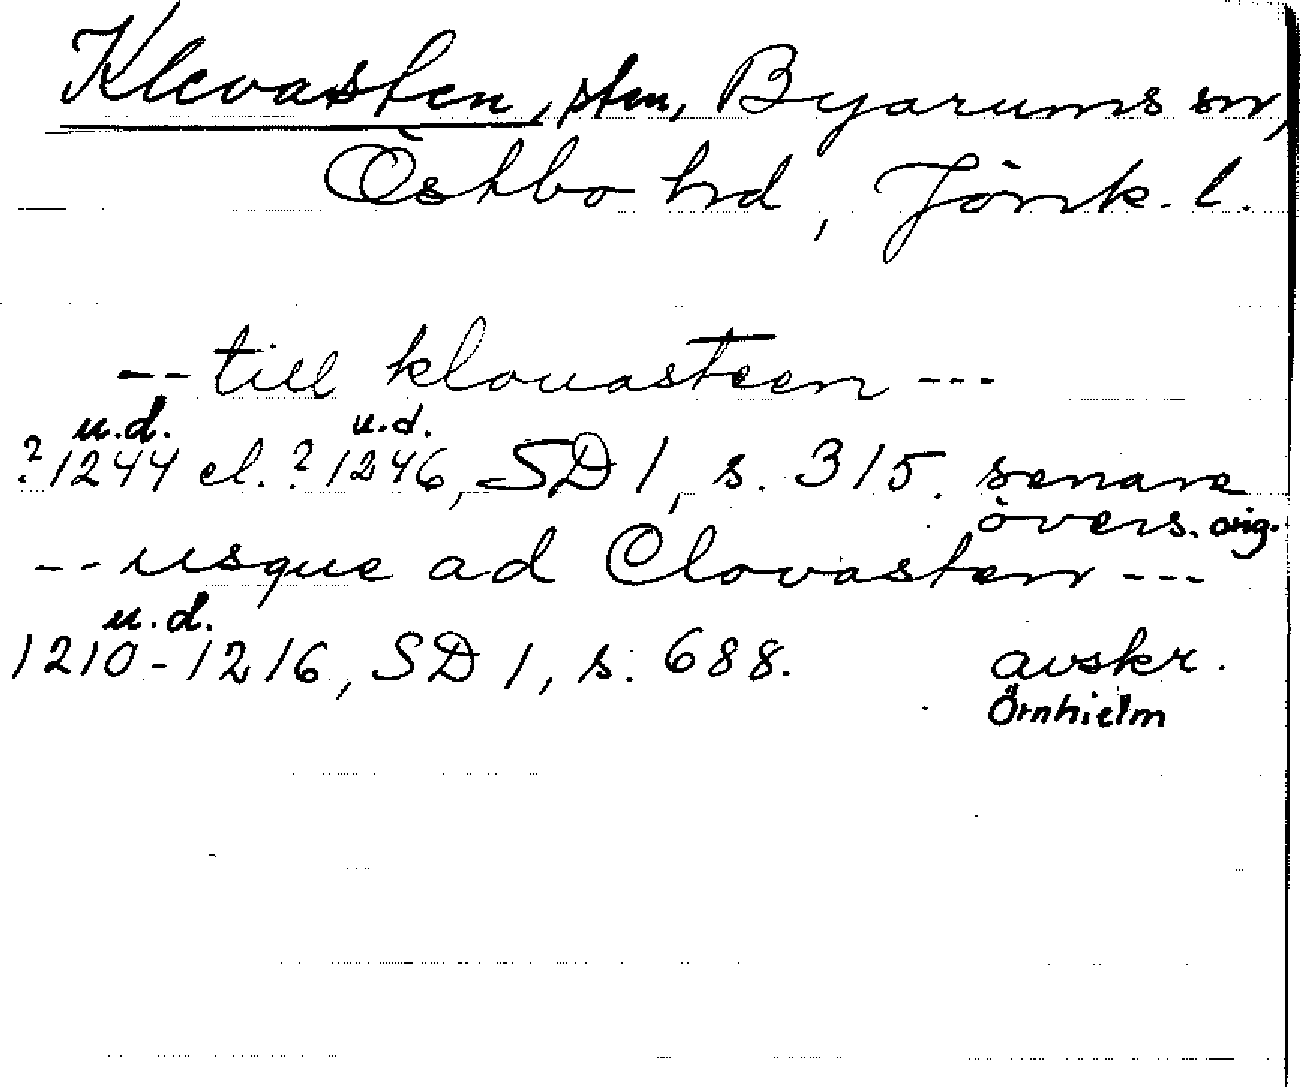 Klevasten, stm, Byarums sn,
Östbo hrd, Jönk. l.
-- till klouasteen ---
u.d. u.d.
?1244 el. ?1246, SD 1, s. 315. senare
övers. orig.
-- usque ad Clovasten ---
u.d.
1210-1216, SD 1, s. 688. avskr.
Örnhielm